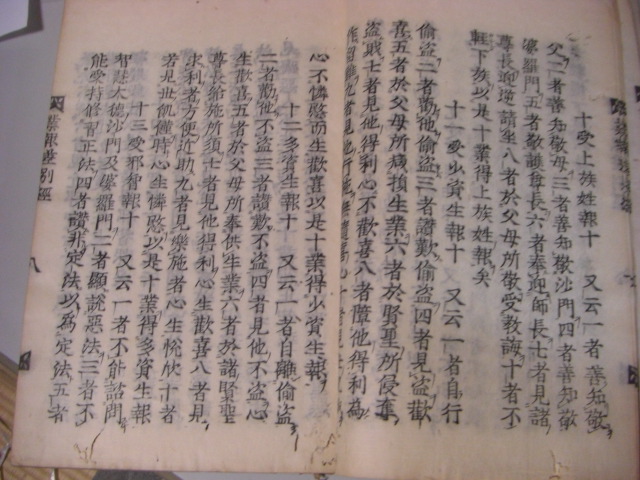 十受上族姓報十　又云一者善知敬
父二者善知敬母三者善知敬沙門四者善知敬
婆羅門五者敬護尊長六者奉迎師長七者見諸
尊長迎逆請坐八者於父母所敬受教誨十者不
輕下族以是十業得上族姓報矣
十一受少資生報十　又云一者自行
偷盜二者勸他偷盜三者讚歎偷盜四者見盜歡
喜五者於父母所減損生業六者於賢聖所侵奪
盜賊七者見他得利心不歡喜八者障他得利為
作留難九者見他行施無
心不憐愍而生歡喜以是十業得少資生報
十二多資生報十　又云一者自離偷盜
二者勸他不盜三者讚歎不盜四者見他不盜心
生歡喜五者於父母所奉供生業六者於諸賢聖
尊長給施所須七者見他得利心生歡喜八者見
求利者方便近助九者見樂施者心生悅欣十者
若見世飢饉時心生憐愍以是十業得多資生報
十三受邪智報十　又云一者不能諮問
智慧大德沙門及婆羅門二者顯說惡法三者不
能受持修習正法四者讚非定法以為定法五者
業報差別經
八